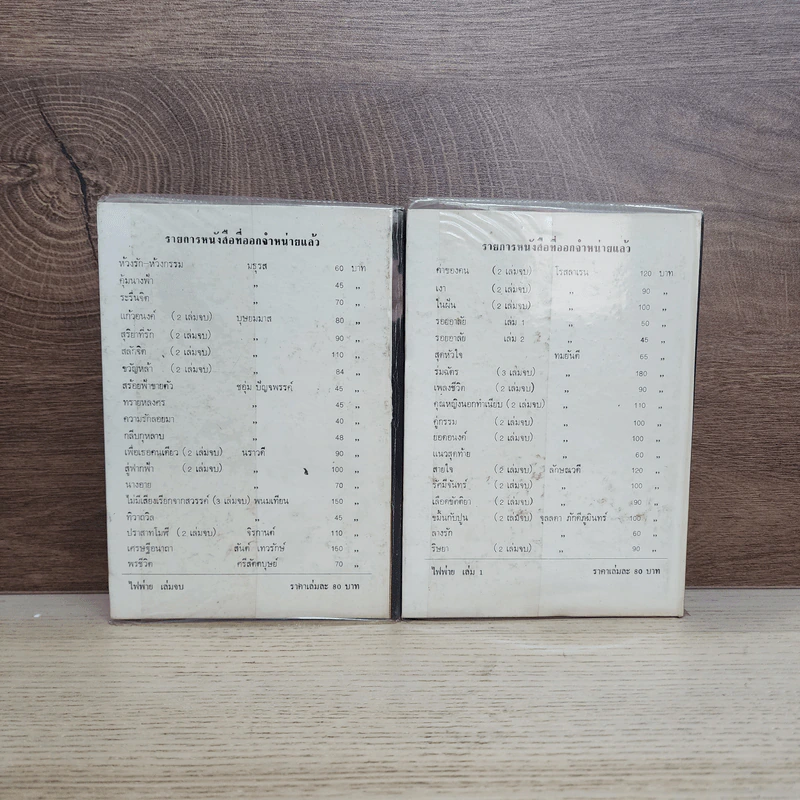 รายการหนังสือที่ออกจำหน่ายแล้ว
ห้วงรัก-ห้วงกรรม มธุรส 60 บาท
คุ้มนางฟ้า " 45 "
ระรื่นจิต " 70 "
แก้วอนงค์ (2 เล่มจบ) บุษยมาส 80 "
สุริยาที่รัก (2 เล่มจบ) " 90 "
สลักจิต (2 เล่มจบ) " 110 "
ขวัญหล้า (2 เล่มจบ) " 84 "
สร้อยฟ้าขายตัว ชอุ่ม ปัญจพรรค์ 45 "
ทรายหลงคร " 45 "
ความรักลอยมา " 40 "
กลีบกุหลาบ " 48 "
เพื่อเธอคนเดียว (2 เล่มจบ) นราวดี 90 "
สู่ฟากฟ้า (2 เล่มจบ) " 100 "
นางอาย " 70 "
ไม่มีเสียงเรียกจากสวรรค์ (3 เล่มจบ) พนมเทียน 150 "
ทิวาถวิล " 45 "
ปราสาทโมฬี (2 เล่มจบ) จิรกานต์ 110 "
เศรษฐีอนาถา สันต์ เทวรักษ์ 160 "
พรชีวิต ศรีสัตตบุษย์ 70 "
ไฟพ่าย เล่มจบ ราคาเล่มละ 80 บาท
รายการหนังสือที่ออกจำหน่ายแล้ว
ค่าของคน (2 เล่มจบ) โรสลาเรน 120 บาท
เงา (2 เล่มจบ) " 90 "
ในฝัน (2 เล่มจบ) " 100 "
รอยอาลัย เล่ม 1 " 50 "
รอยอาลัย เล่ม 2 " 45 "
สุดหัวใจ ทมยันตี 65 "
ร่มฉัตร (3 เล่มจบ) " 180 "
เพลงชีวิต (2 เล่มจบ) " 90 "
คุณหญิงนอกทำเนียบ (2 เล่มจบ) " 110 "
คู่กรรม (2 เล่มจบ) " 100 "
ยอดอนงค์ (2 เล่มจบ) " 100 "
แนวสุดท้าย " 60 "
สายใจ (2 เล่มจบ) ลักษณวดี 120 "
รัศมีจันทร์ (2 เล่มจบ) " 100 "
เลือดขัตติยา (2 เล่มจบ) " 90 "
ขมิ้นกับปูน (2 เล่มจบ) จุลลดา ภักดีภูมินทร์ 100 "
ลางรัก " 60 "
ริษยา (2 เล่มจบ) " 90 "
ไฟพ่าย เล่ม 1 ราคาเล่มละ 80 บาท